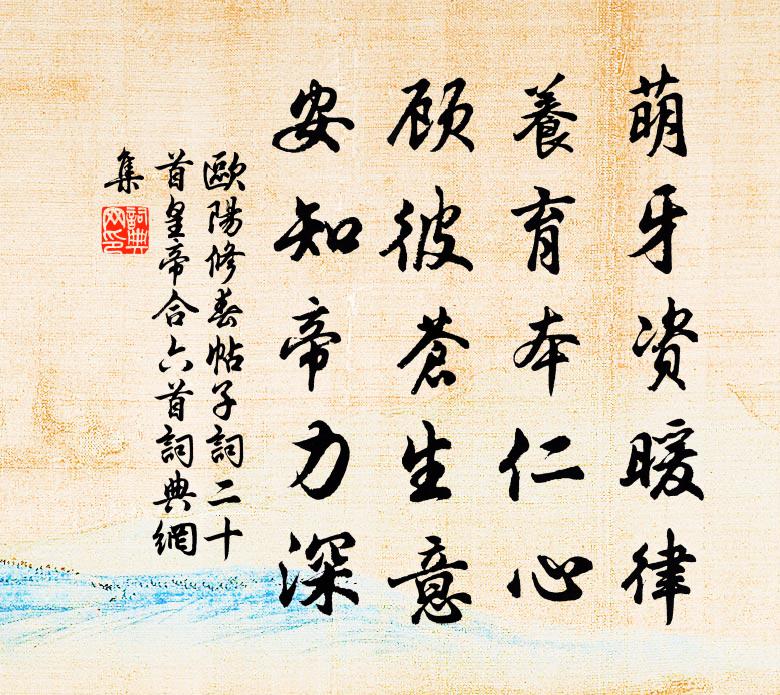 萌牙资暖律
養育本仁心
顾彼蒼生意
安知帝力深
歐陽修春帖子詞二十
首皇帝合六首詞典網
集
詞典
网印